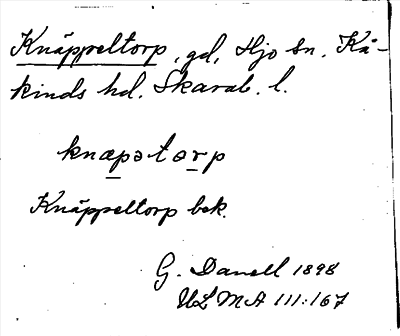 Knäppeltorp, gd, Hjo sn. Kå-
kinds hd. Skarab. l.
knæpətɷrp
Knäppeltorp bek.
G. Danell 1898
ULMA 111:167